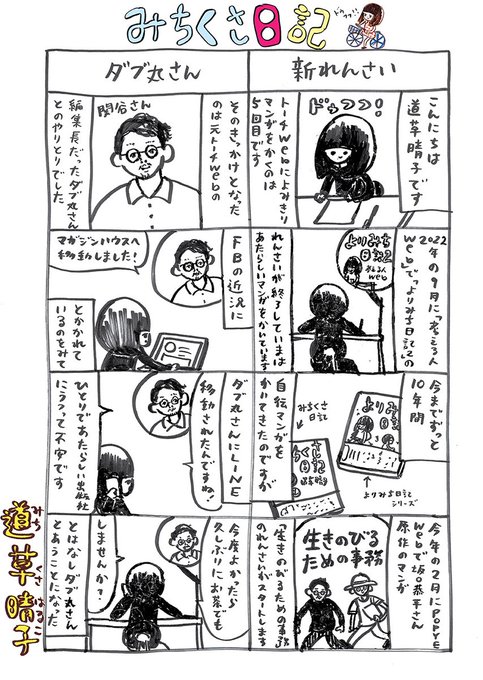 みちくさ日記
どっつつ!!
新れんさい
こんにちは
道草晴子です
ドゥフフフ!
トーチWebによみきり
マンガをかくのは
5回目です
2022年の9月に「考える人
Web」で「よりみち日記2」の
よりみち
日記2
考える人
Web
れんさいが終了していまは
あたらしいマンガをかいています
今までずっと
10年間
みちくさ
日記
よりみち
日記
↑
よりみち日記
シリーズ
自伝マンガを
かいてきたのですが
今年の2月にPOPYE
Webで坂口恭平さん
原作のマンガ
生きのびる
ための事務
「生きのびるための事務」
のれんさいがスタートします
ダブ丸さん
そのきっかけとなった
のは元トーチWebの
関谷さん
編集長だったダブ丸さん
とのやりとりでした
FBの近況に
マガジンハウスへ
移動しました!
とかかれて
いるのをみて
ダブ丸さんにLINE
移動されたんですね!
ひとりであたらしい出版社
にうつって不安です
今度よかったら
久しぶりにお茶でも
しませんか?
とはなしダブ丸さん
とあうことになった
道草晴子
みちくさはるこ